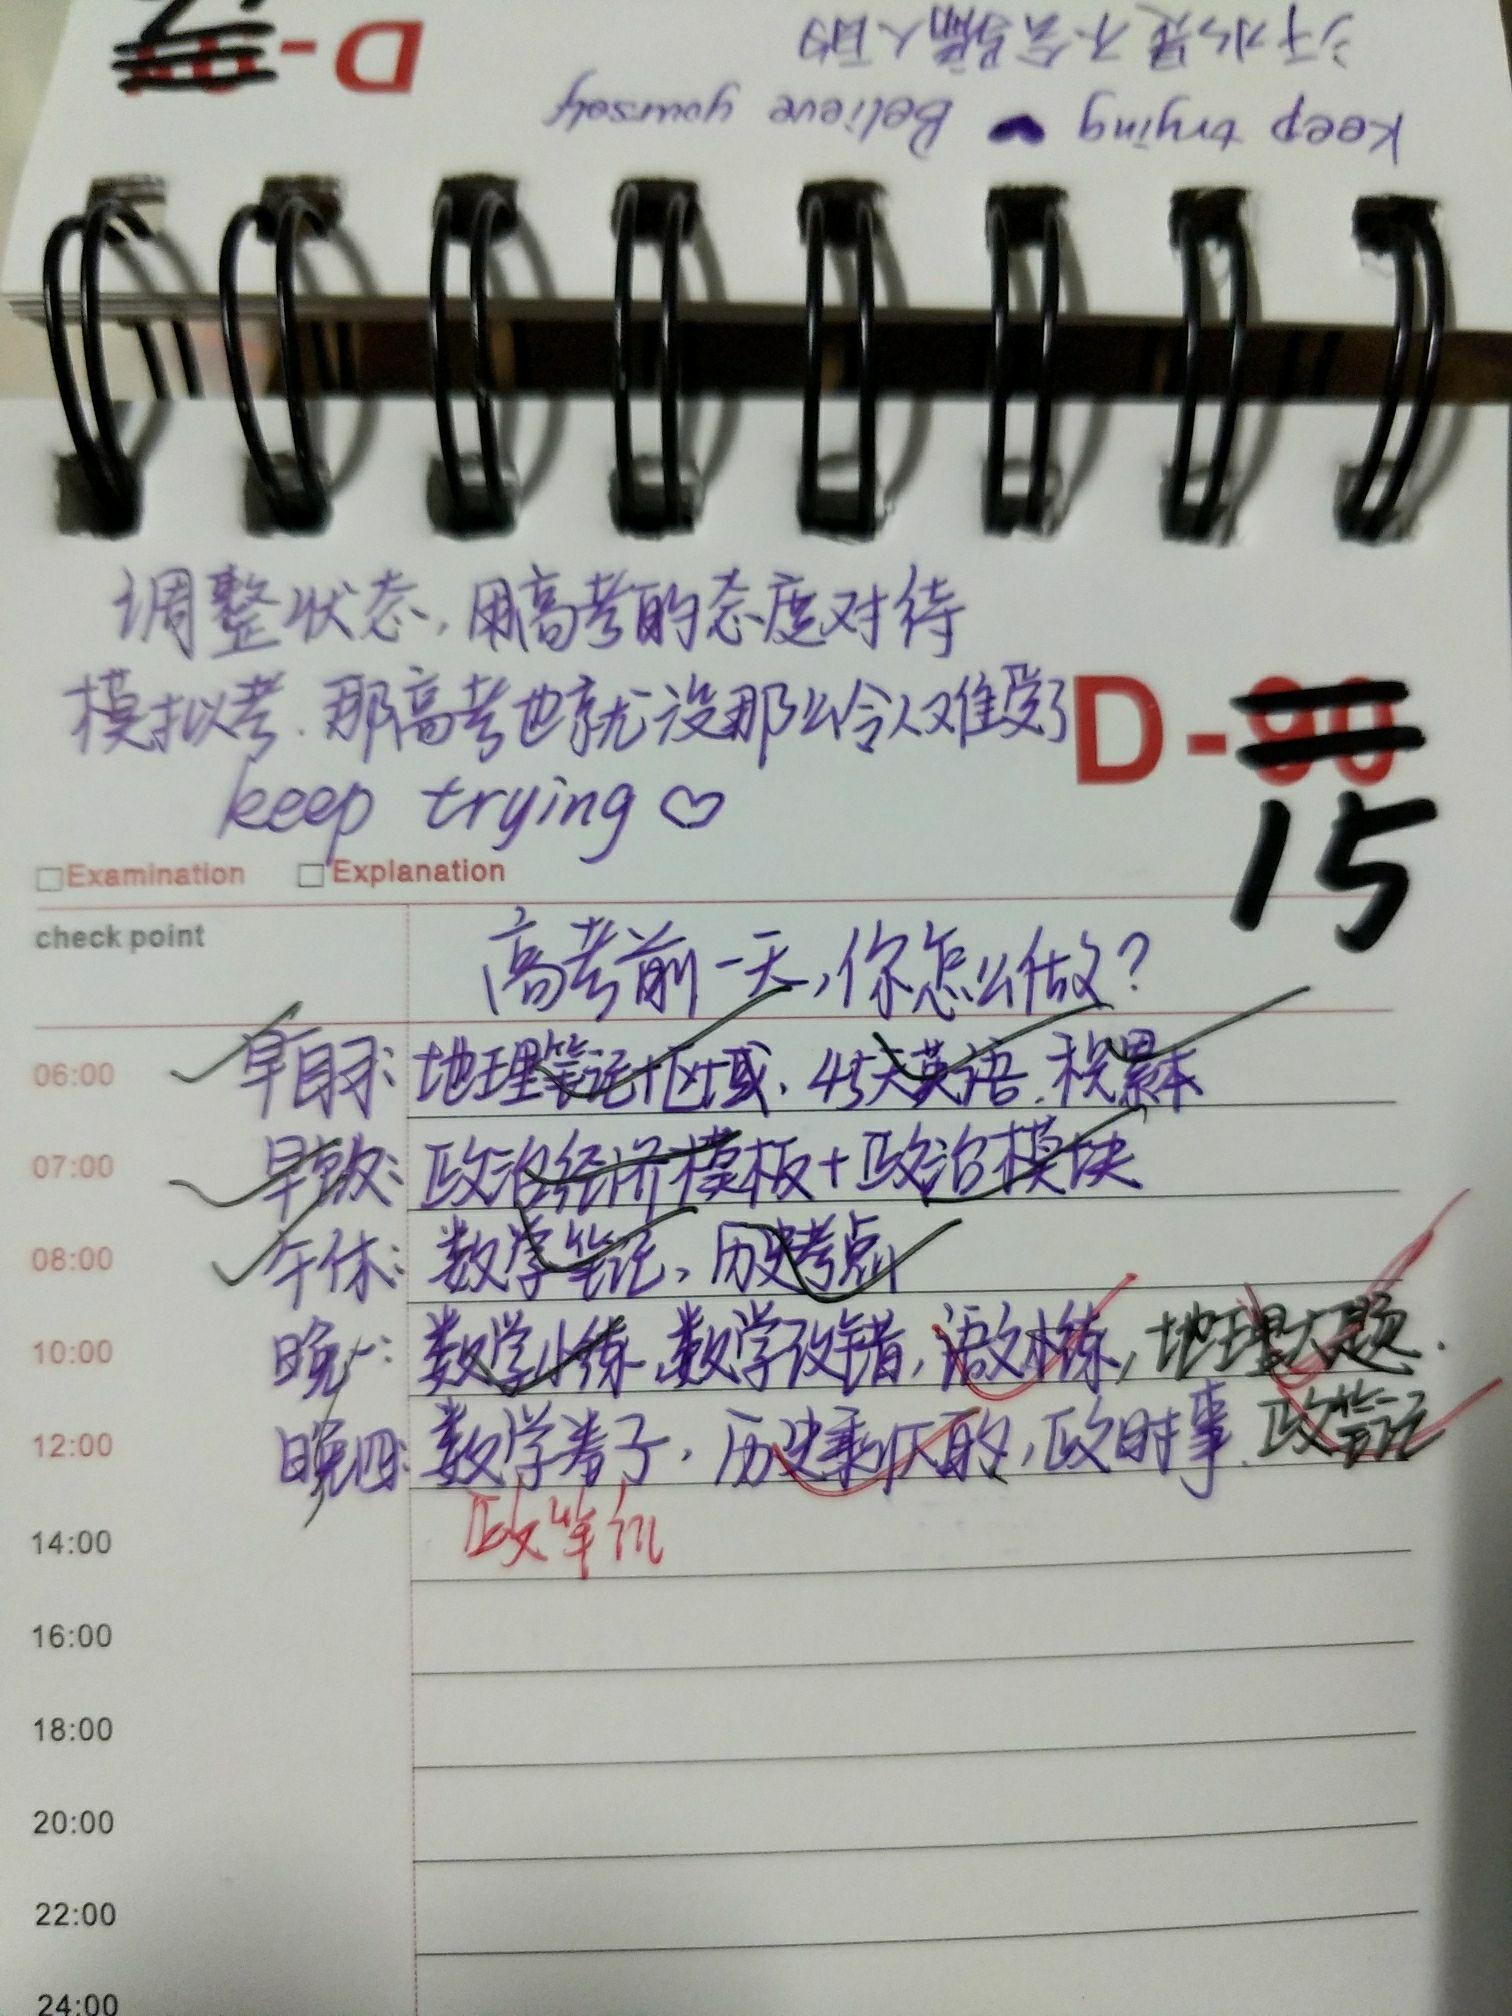 汗水是不会骗人的
Keep trying Believe yourself
D-
调整状态,用高考的态度对待
模拟考.那高考也就没那么令人难受了
keep trying♡
D-90
15
□Examination □Explanation
check point
高考前一天,你怎么做?
06:00 早自习:地理笔记+区域.45天英语.积累本
07:00 早饭:政治经济模板+政治模块
08:00 午休:数学笔记、历史考点
10:00 晚一:数学小练.数学改错,语文小练,地理大题.
12:00 晚四:数学卷子,历史剩下的,政时事.政笔记
政笔记
14:00
16:00
18:00
20:00
22:00
24:00